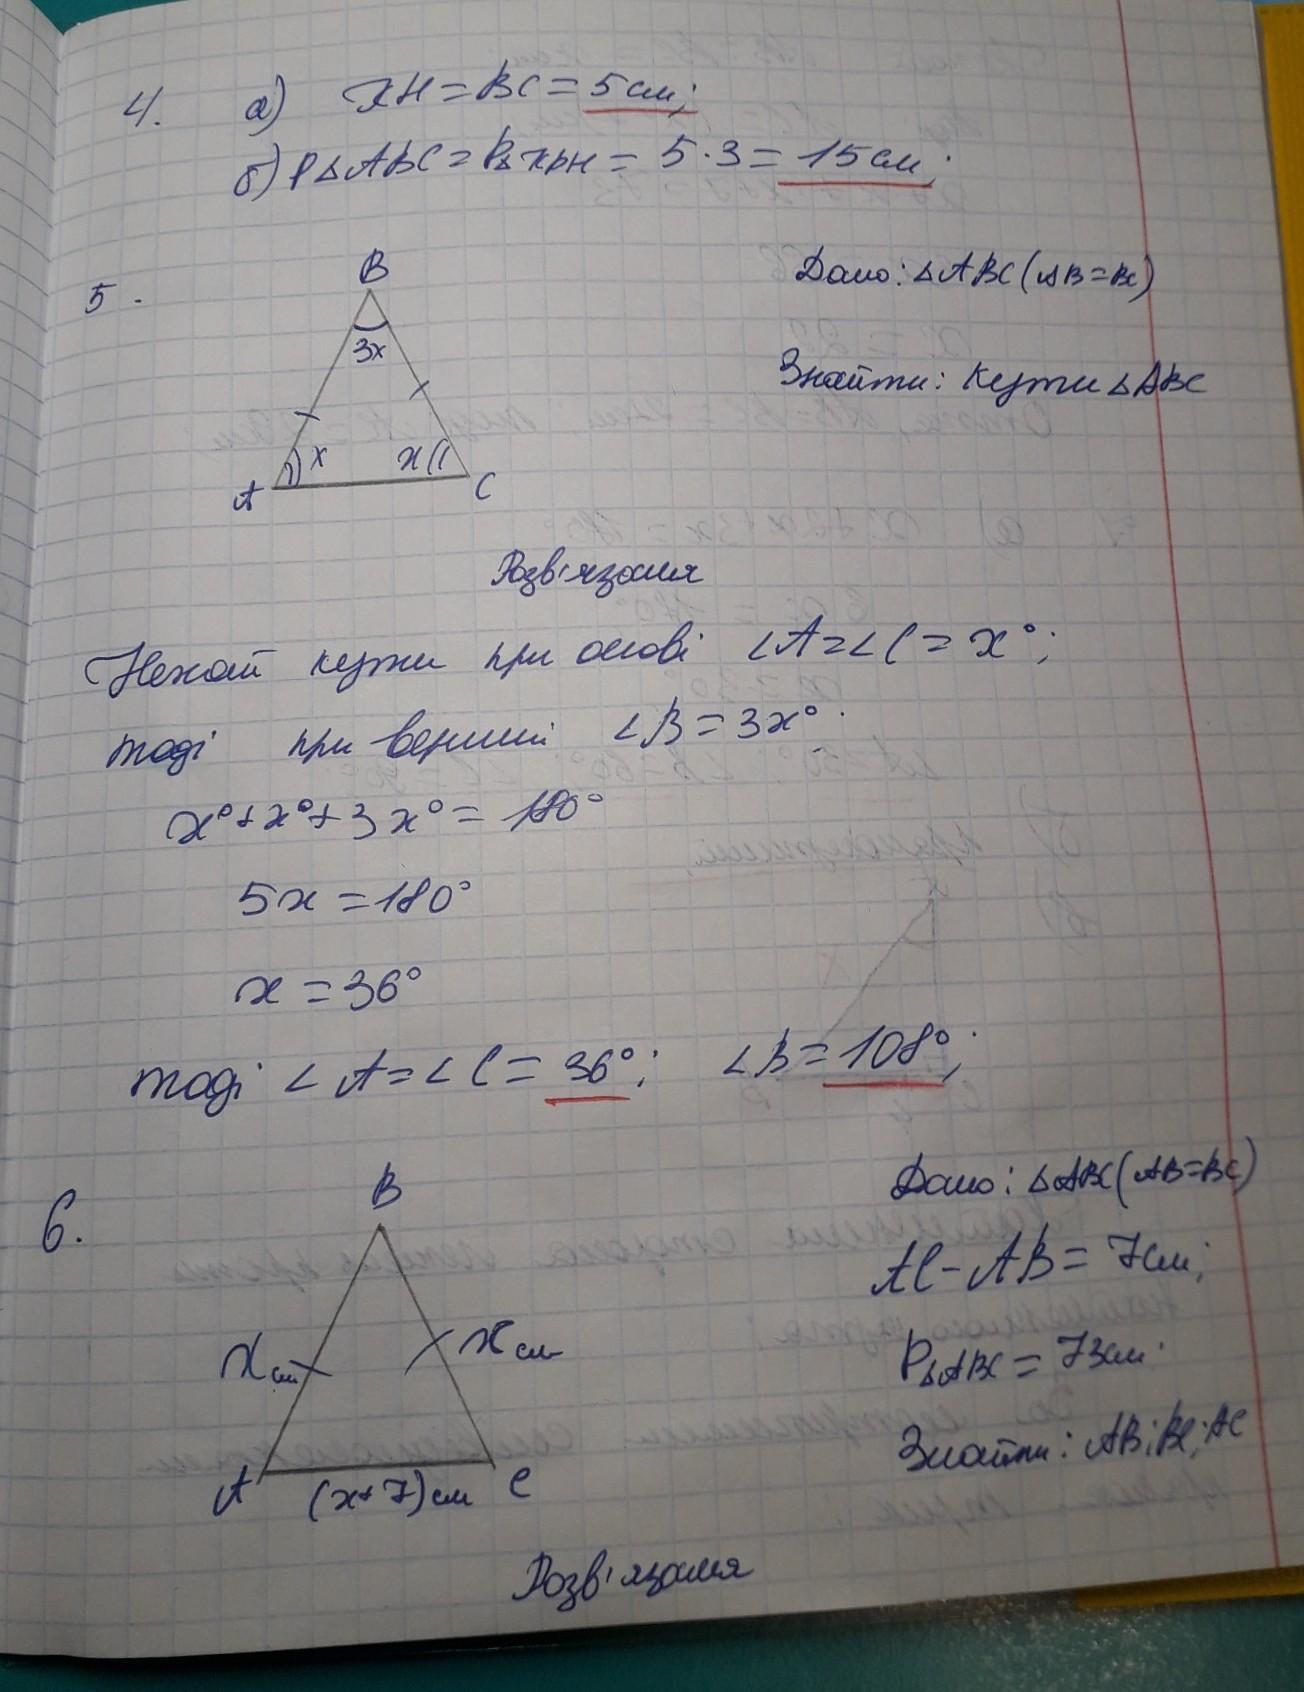 4. а) XH = BC = 5 см;
б) P△ABC = P△XPH = 5 · 3 = 15 см;
5.
B
3x
x
x
A
C
Дано: △ABC (AB = BC)
Знайти: кути △ABC
Розв'язання
Нехай кути при основі ∠A = ∠C = x°;
тоді при вершині ∠B = 3x°.
x° + x° + 3x° = 180°
5x = 180°
x = 36°
тоді ∠A = ∠C = 36°; ∠B = 108°;
6.
B
x см
x см
A
(x + 7) см
C
Дано: △ABC (AB = BC)
AC - AB = 7 см;
P△ABC = 73 см.
Знайти: AB; BC; AC
Розв'язання